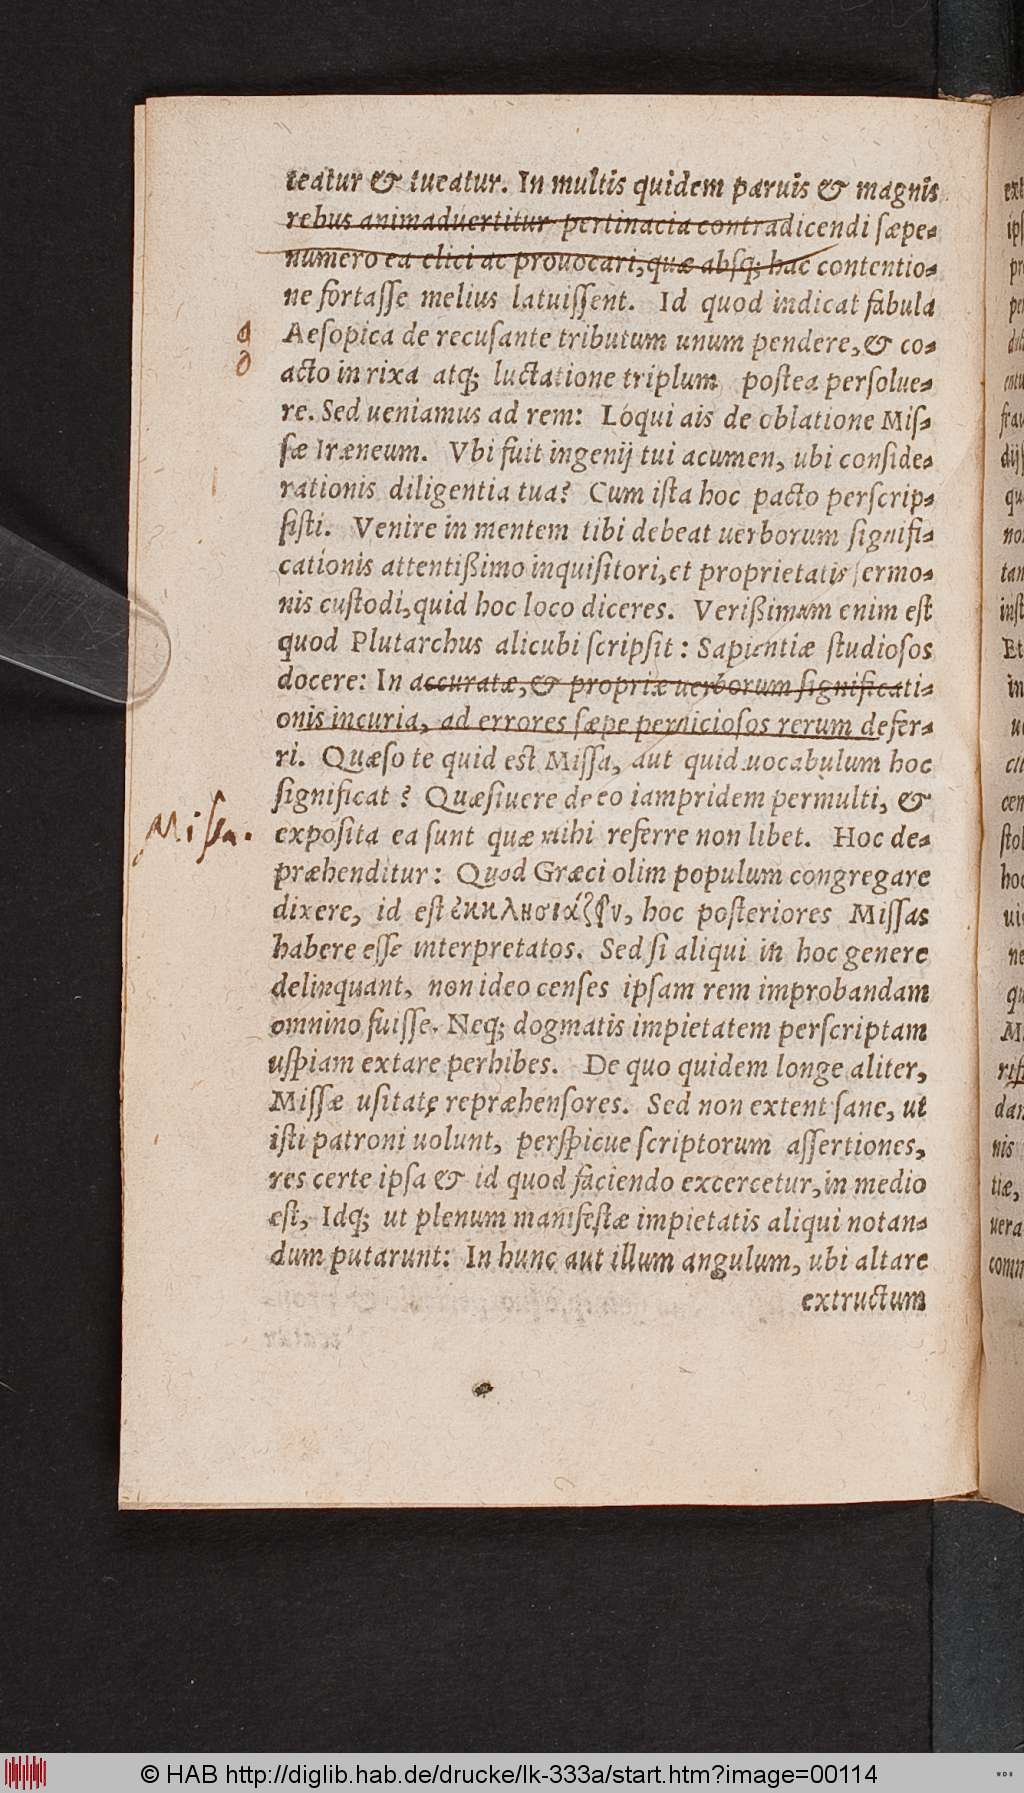 teatur & tueatur. In multis quidem paruis & magnis
rebus animaduertitur pertinacia contradicendi sæpe-
numero ea elici ac prouocari, quæ absq; hac contentio-
ne fortasse melius latuissent. Id quod indicat fabula
Aesopica de recusante tributum unum pendere, & co-
acto in rixa atq; luctatione triplum postea persolue-
re. Sed ueniamus ad rem: Loqui ais de oblatione Mis-
sæ Iræneum. Vbi fuit ingenij tui acumen, ubi conside-
rationis diligentia tua? Cum ista hoc pacto perscrip-
sisti. Venire in mentem tibi debeat uerborum signifi-
cationis attentißimo inquisitori, et proprietatis sermo-
nis custodi, quid hoc loco diceres. Verißimum enim est
quod Plutarchus alicubi scripsit: Sapientiæ studiosos
docere: In accuratæ, & propriæ uerborum significati-
onis incuria, ad errores sæpe perniciosos rerum defer-
ri. Quæso te quid est Missa, aut quid uocabulum hoc
significat? Quæsiuere de eo iampridem permulti, &
Missa.
exposita ea sunt quæ mihi referre non libet. Hoc de-
præhenditur: Quod Græci olim populum congregare
dixere, id est ἐκκλησιάζειν, hoc posteriores Missas
habere esse interpretatos. Sed si aliqui in hoc genere
delinquant, non ideo censes ipsam rem improbandam
omnino fuisse. Neq; dogmatis impietatem perscriptam
uspiam extare perhibes. De quo quidem longe aliter,
Missæ usitatę repræhensores. Sed non extent sane, ut
isti patroni uolunt, perspicue scriptorum assertiones,
res certe ipsa & id quod faciendo excercetur, in medio
est, Idq; ut plenum manifestæ impietatis aliqui notan-
dum putarunt: In hunc aut illum angulum, ubi altare
extructum
© HAB http://diglib.hab.de/drucke/lk-333a/start.htm?image=00114